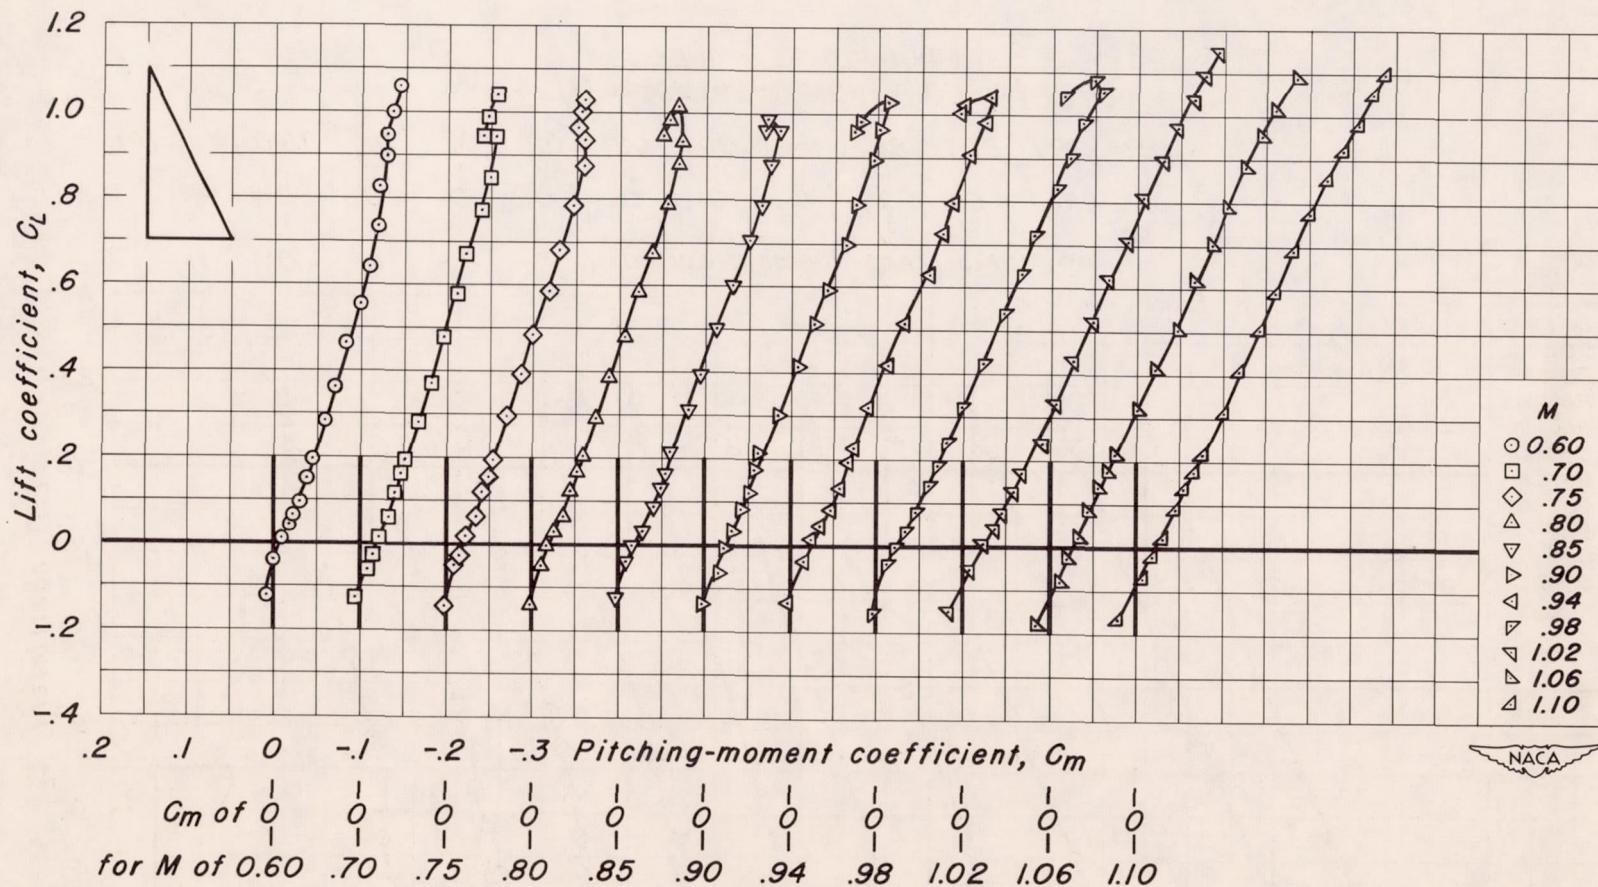 1.2
1.0
.8
.6
.4
.2
0
-.2
-.4
Lift coefficient, CL
M
0.60
.70
.75
.80
.85
.90
.94
.98
1.02
1.06
1.10
.2 .1 0 -.1 -.2 -.3 Pitching-moment coefficient, Cm
NACA
Cm of 0 0 0 0 0 0 0 0 0 0 0
for M of 0.60 .70 .75 .80 .85 .90 .94 .98 1.02 1.06 1.10